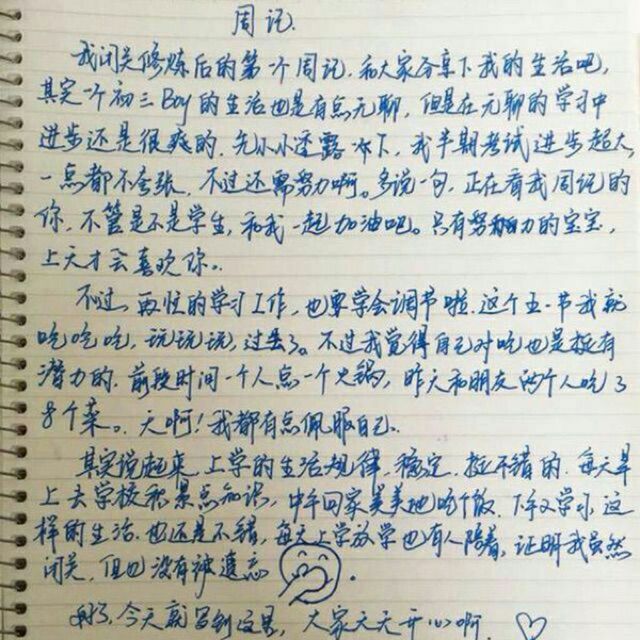 周记.
我闭关修炼后的第一个周记,和大家分享下我的生活吧,
其实一个初三Boy的生活也是有点无聊,但是在无聊的学习中
进步还是很爽的.先小小透露一下,我半期考试进步超大,
一点都不夸张,不过还需努力啊。多说一句,正在看我周记的
你,不管是不是学生,和我一起加油吧。只有努力的宝宝,
上天才会喜欢你。
不过,再忙的学习工作,也要学会调节啦.这个五一节我就
吃吃吃,玩玩玩,过去了。不过我觉得自己对吃也是挺有
潜力的.前段时间一个人点一个火锅,昨天和朋友两个人吃了
8个菜。天啊!我都有点佩服自己.
其实说起来,上学的生活规律,稳定,挺不错的.每天早
上去学校积累点知识,中午回家美美地吃个饭,下午又学习,这
样的生活.也还是不错,每天上学放学也有人陪着,证明我虽然
闭关,但也没有被遗忘.
好了,今天就写到这里,大家天天开心啊.